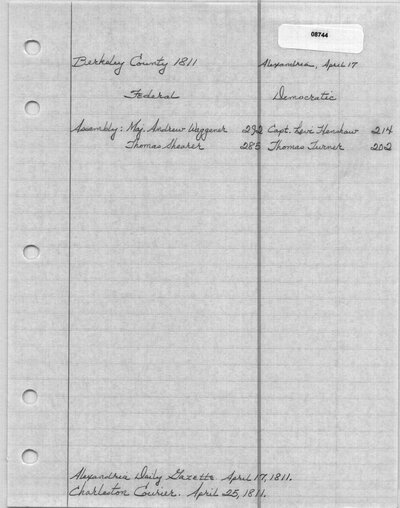 08744
Berkeley County 1811 Alexandria, April 17
Federal Democratic
Assembly: Maj. Andrew Waggener 292 Capt. Levi Henshaw 214
Thomas Shearer 285 Thomas Turner 202
Alexandria Daily Gazette. April 17, 1811.
Charleston Courier. April 25, 1811.